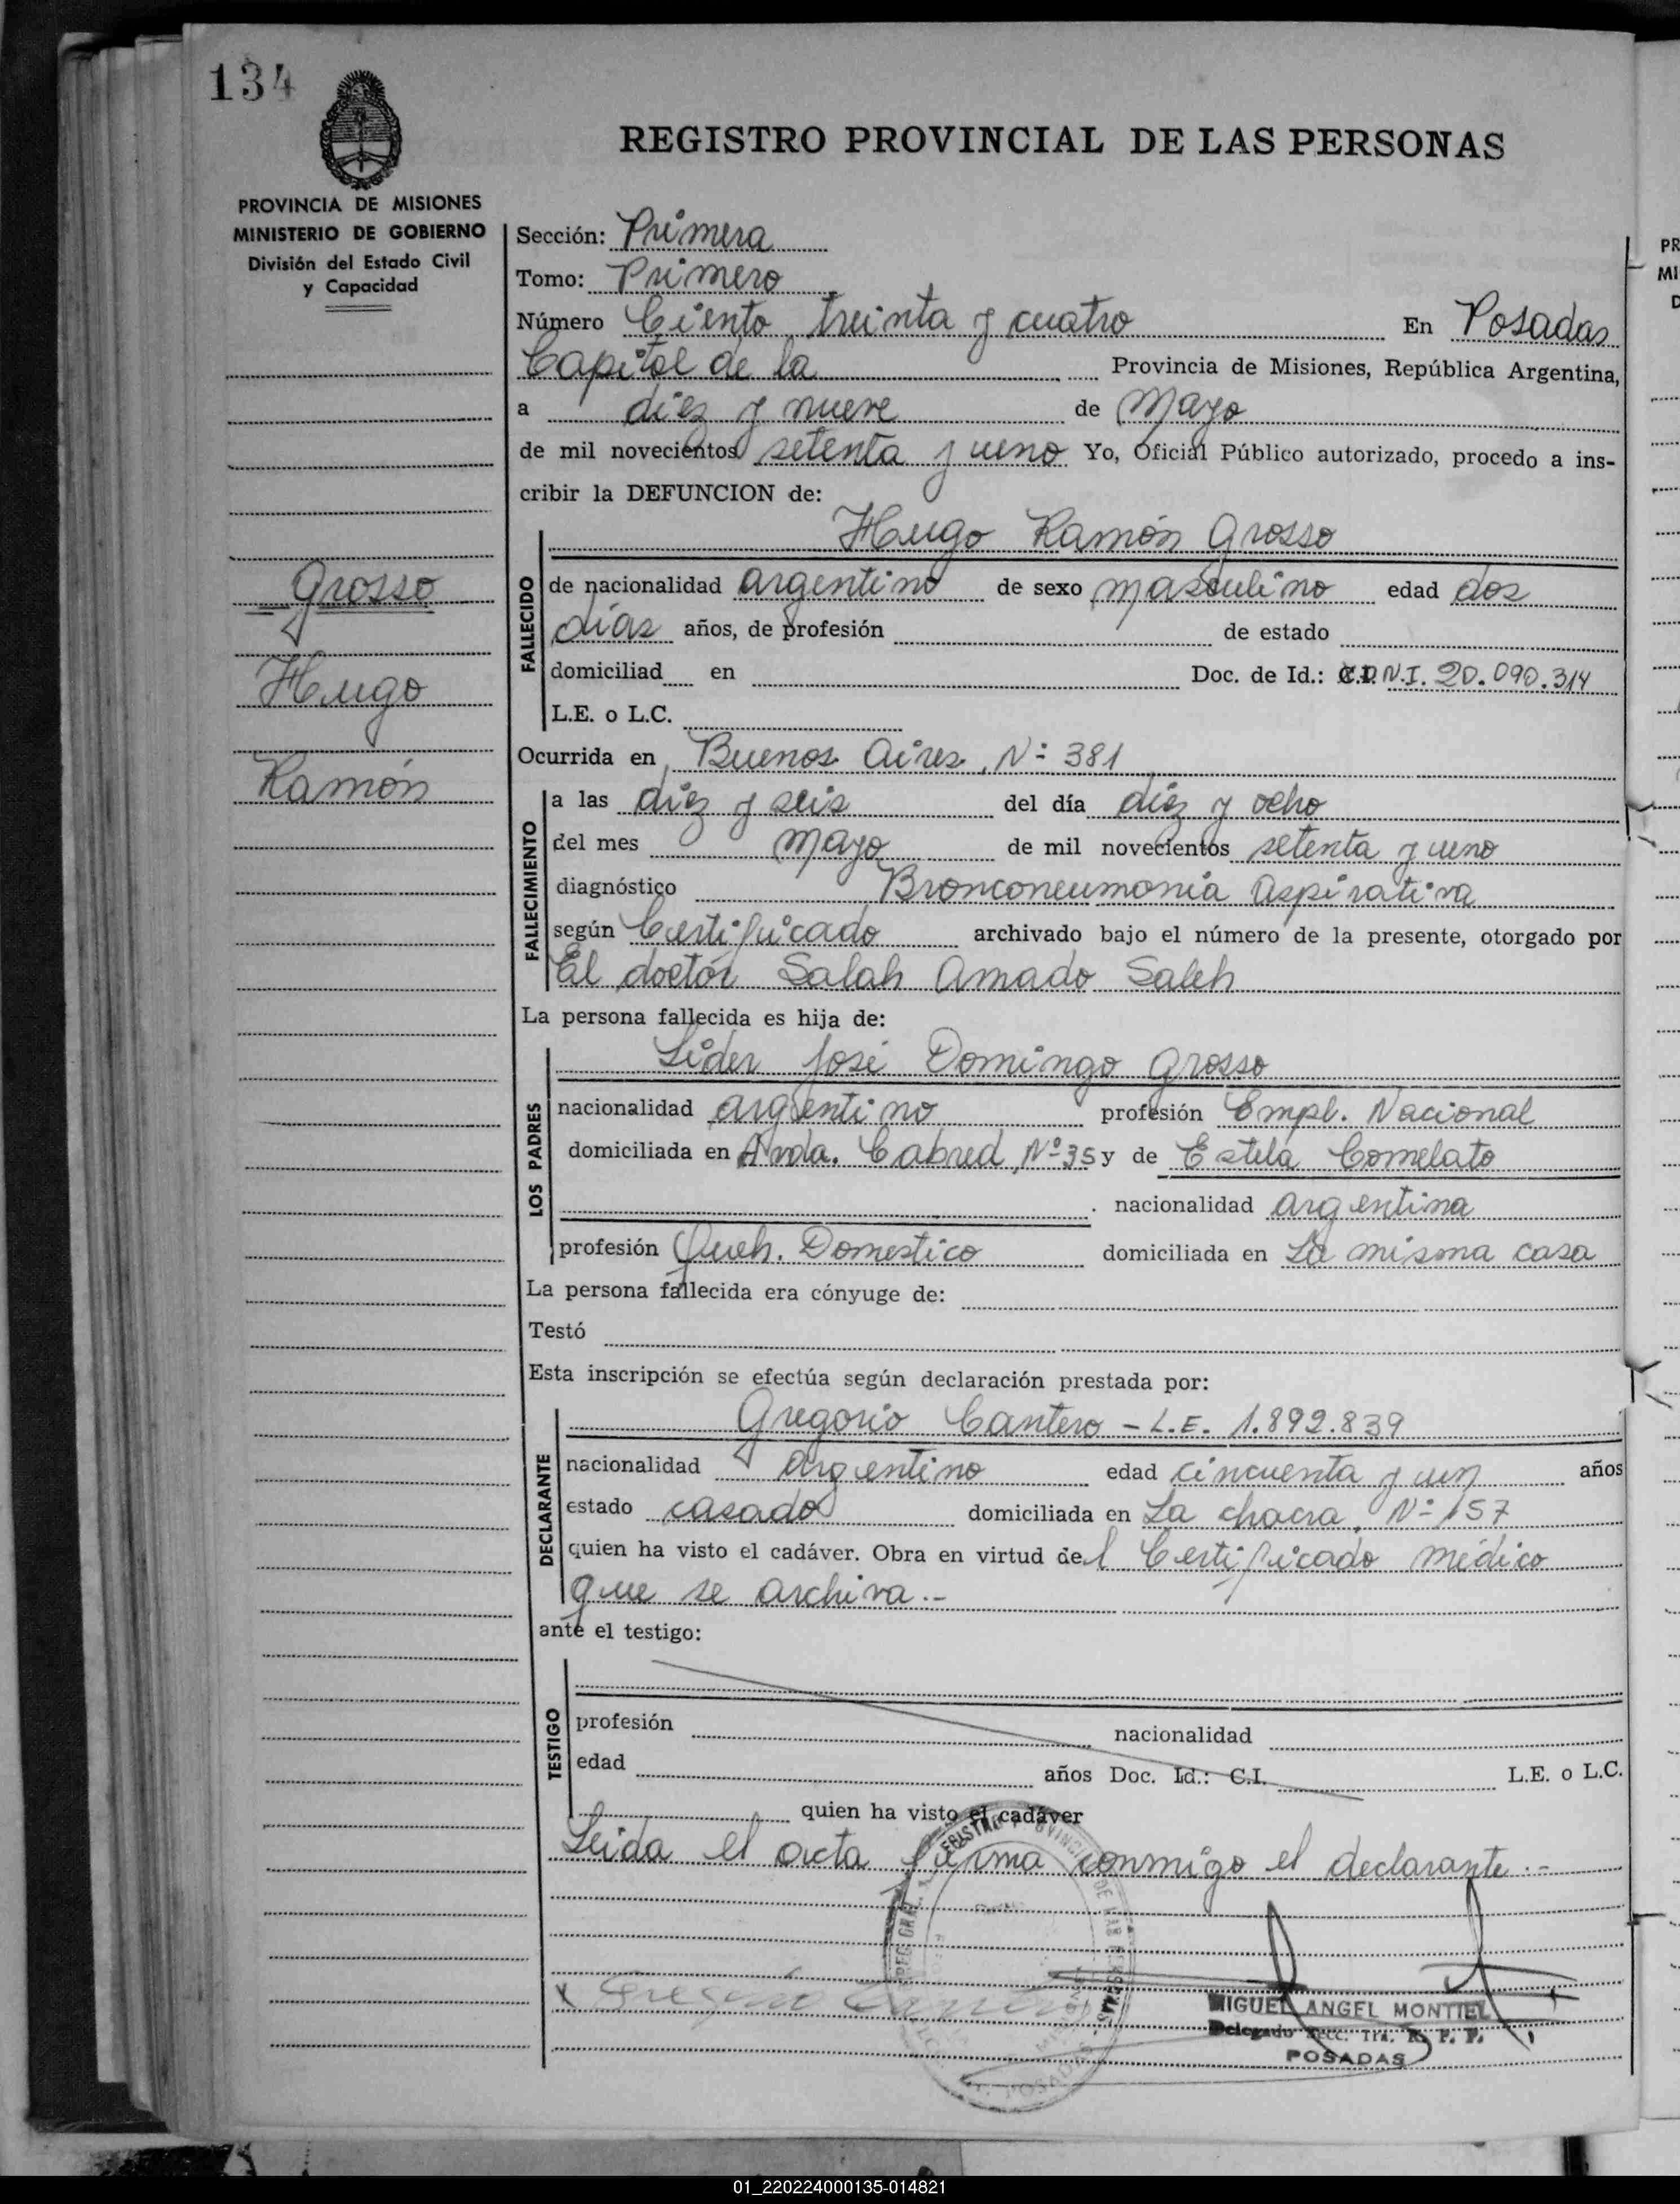 134
REGISTRO PROVINCIAL DE LAS PERSONAS
PROVINCIA DE MISIONES
MINISTERIO DE GOBIERNO
División del Estado Civil
y Capacidad
Sección: Primera
Tomo: Primero
Número Ciento treinta y cuatro En Posadas
Capital de la Provincia de Misiones, República Argentina,
a diez y nueve de Mayo
de mil novecientos setenta y uno Yo, Oficial Público autorizado, procedo a ins-
cribir la DEFUNCION de:
Hugo Ramón Grosso
Grosso
Hugo
Ramón
FALLECIDO
de nacionalidad argentino de sexo masculino edad dos
días años, de profesión de estado
domiciliad en Doc. de Id.: D.N.I. 20.090.314
L.E. o L.C.
Ocurrida en Buenos Aires, Nº 381
FALLECIMIENTO
a las diez y seis del día diez y ocho
del mes Mayo de mil novecientos setenta y uno
diagnóstico Bronconeumonia Aspirativa
según Certificado archivado bajo el número de la presente, otorgado por
El doctor Salah Amado Saleh
La persona fallecida es hija de:
LOS PADRES
Lider José Domingo Grosso
nacionalidad argentino profesión Empl. Nacional
domiciliada en Avda. Cabred, Nº 35 y de Estela Comelato
nacionalidad argentina
profesión Queh. Domestico domiciliada en La misma casa
La persona fallecida era cónyuge de:
Testó
Esta inscripción se efectúa según declaración prestada por:
DECLARANTE
Gregorio Cantero - L.E. 1.892.839
nacionalidad argentino edad cincuenta y un años
estado casado domiciliada en La chacra, Nº 157
quien ha visto el cadáver. Obra en virtud del Certificado médico
que se archiva.-
ante el testigo:
TESTIGO
profesión nacionalidad
edad años Doc. Id.: C.I. L.E. o L.C.
quien ha visto el cadáver
Leida el acta firma conmigo el declarante.-
x Gregorio Cantero
MIGUEL ANGEL MONTIEL
Delegado Secc. 1ra. R. P. P.
POSADAS
PR
MI
D
01_220224000135-014821